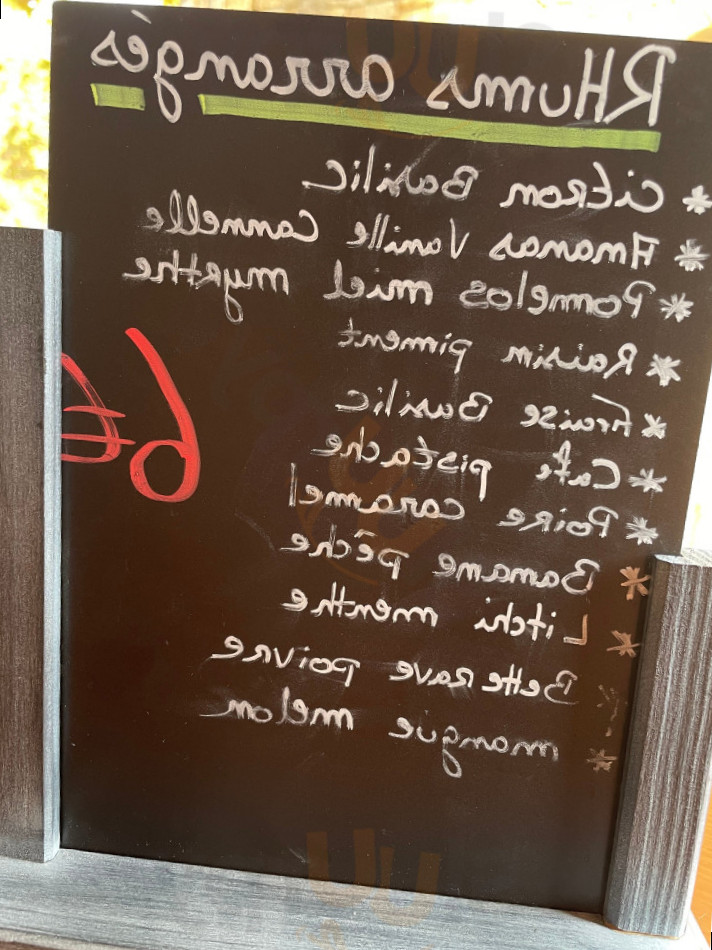 RHums arrangés
* Citron Basilic
* Ananas Vanille Cannelle
* Pomelos miel myrthe
* Raisin piment
* fraise Basilic
* Café pistache
* Poire caramel
* Banane pêche
* Litchi menthe
* Betterave poivre
* mangue melon
6€